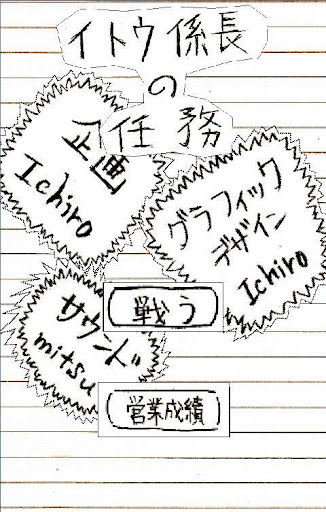 イトウ係長
の
任務
企画
Ichiro
グラフィック
デザイン
Ichiro
サウンド
mitsu
戦う
営業成績